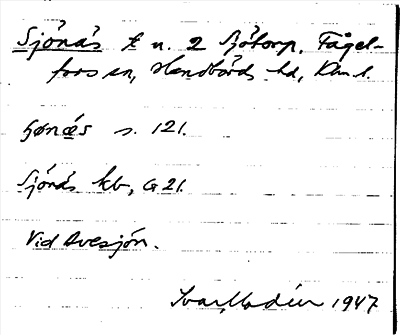 Sjönäs t u. 2 Sjötorp, Fågel-
fors sn, Handbörds hd, Klm l.
Siönäs s. 121.
Sjönäs kb, G 21.
Vid Avesjön.
Ivar Modéer 1947